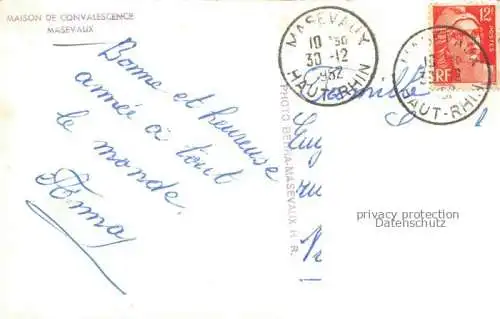 MAISON DE CONVALESCENCE
MASEVAUX
Bonne et heureuse
année à tout
le monde.
MASEVAUX
10 30
30 -12
1952
HAUT-RHIN
12F
POSTES
RF
HAUT-RHIN
Famille
PHOTO BEHRA-MASEVAUX, H. R.
privacy protection
Datenschutz